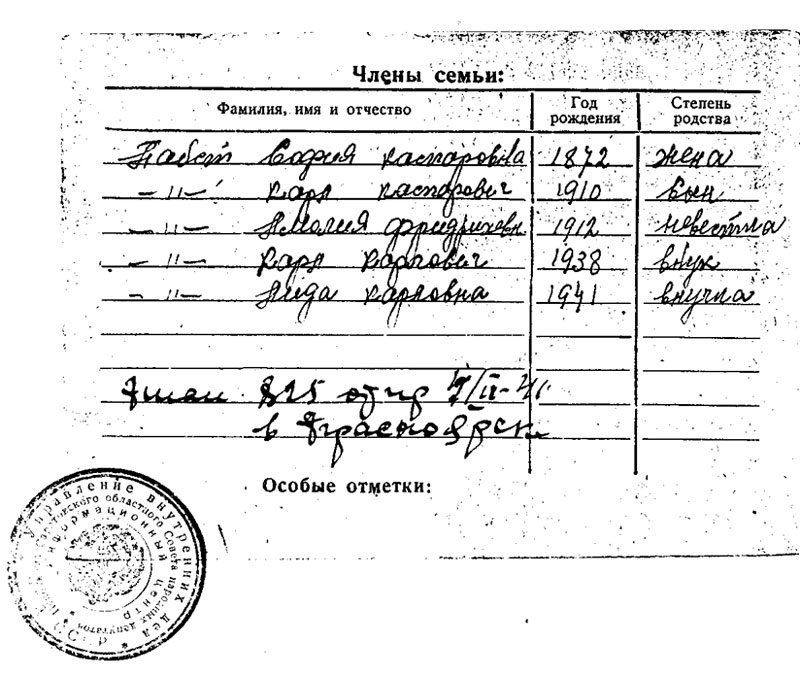 Члены семьи:
Фамилия, имя и отчество Год рождения Степень родства
Пабст София Каспаровна 1872 жена
— 〃 — Карл Каспарович 1910 сын
— 〃 — Амалия Фридриховн 1912 невестка
— 〃 — Карл Карлович 1938 внук
— 〃 — Лида Карловна 1941 внучка
Эшал 825 отпр
в Красноярск
Особые отметки:
Управление внутренних дел
областного Совета народных депутатов
Информационный центр